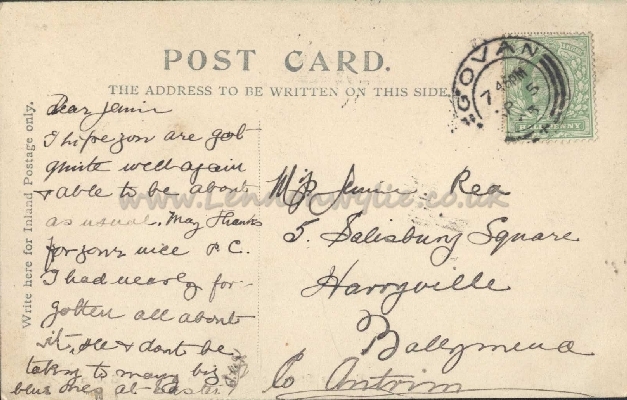 POST CARD.
THE ADDRESS TO BE WRITTEN ON THIS SIDE.
Write here for Inland Postage only.
GOVAN
Dear Jennie
I hope you are got
quite well again
& able to be about
as usual. Many thanks
for your nice P.C.
I had nearly for-
gotten all about
it, & dont be
taking to many big
blue ones at Easter
Jennie Rea
5. Salisbury Square
Harryville
Ballymena
Co Antrim
www.Lenathewylie.co.uk